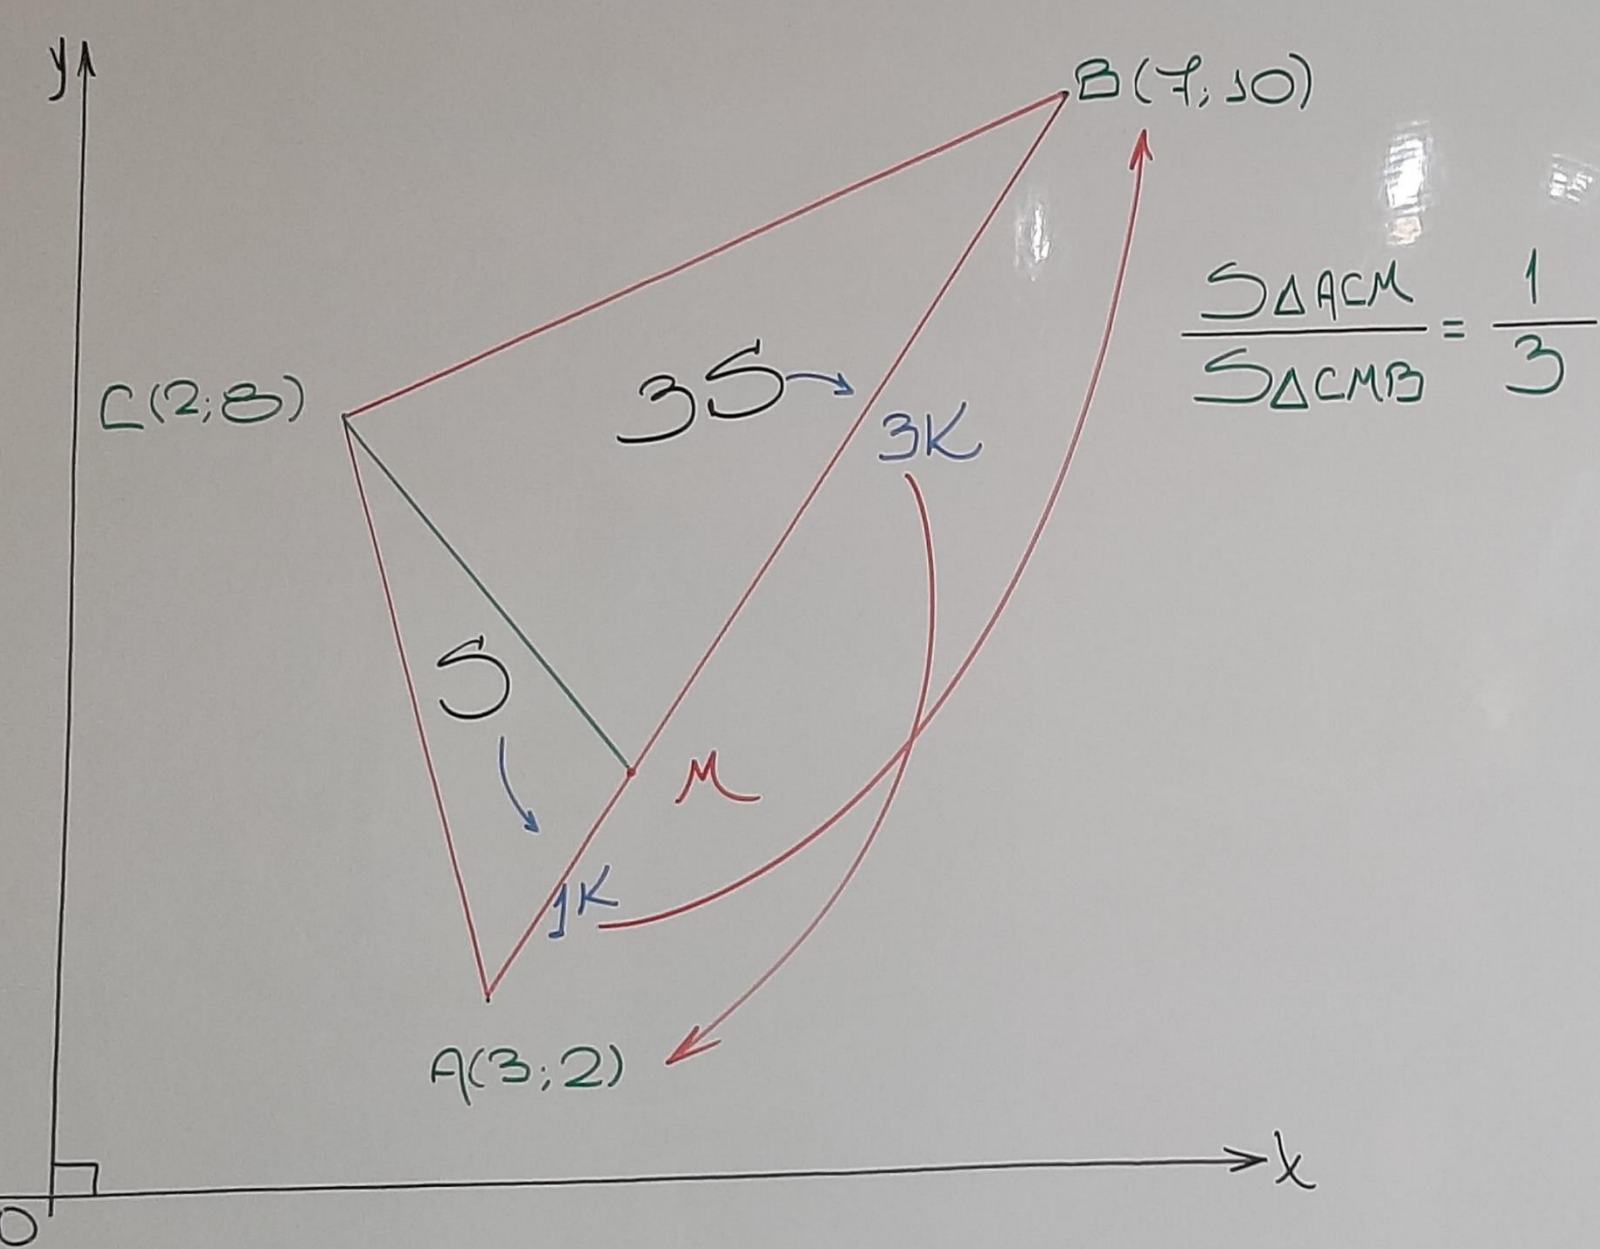 y
B(7;10)
SΔACM / SΔCMB = 1/3
C(2;8)
3S
3K
S
M
1K
A(3;2)
x
O